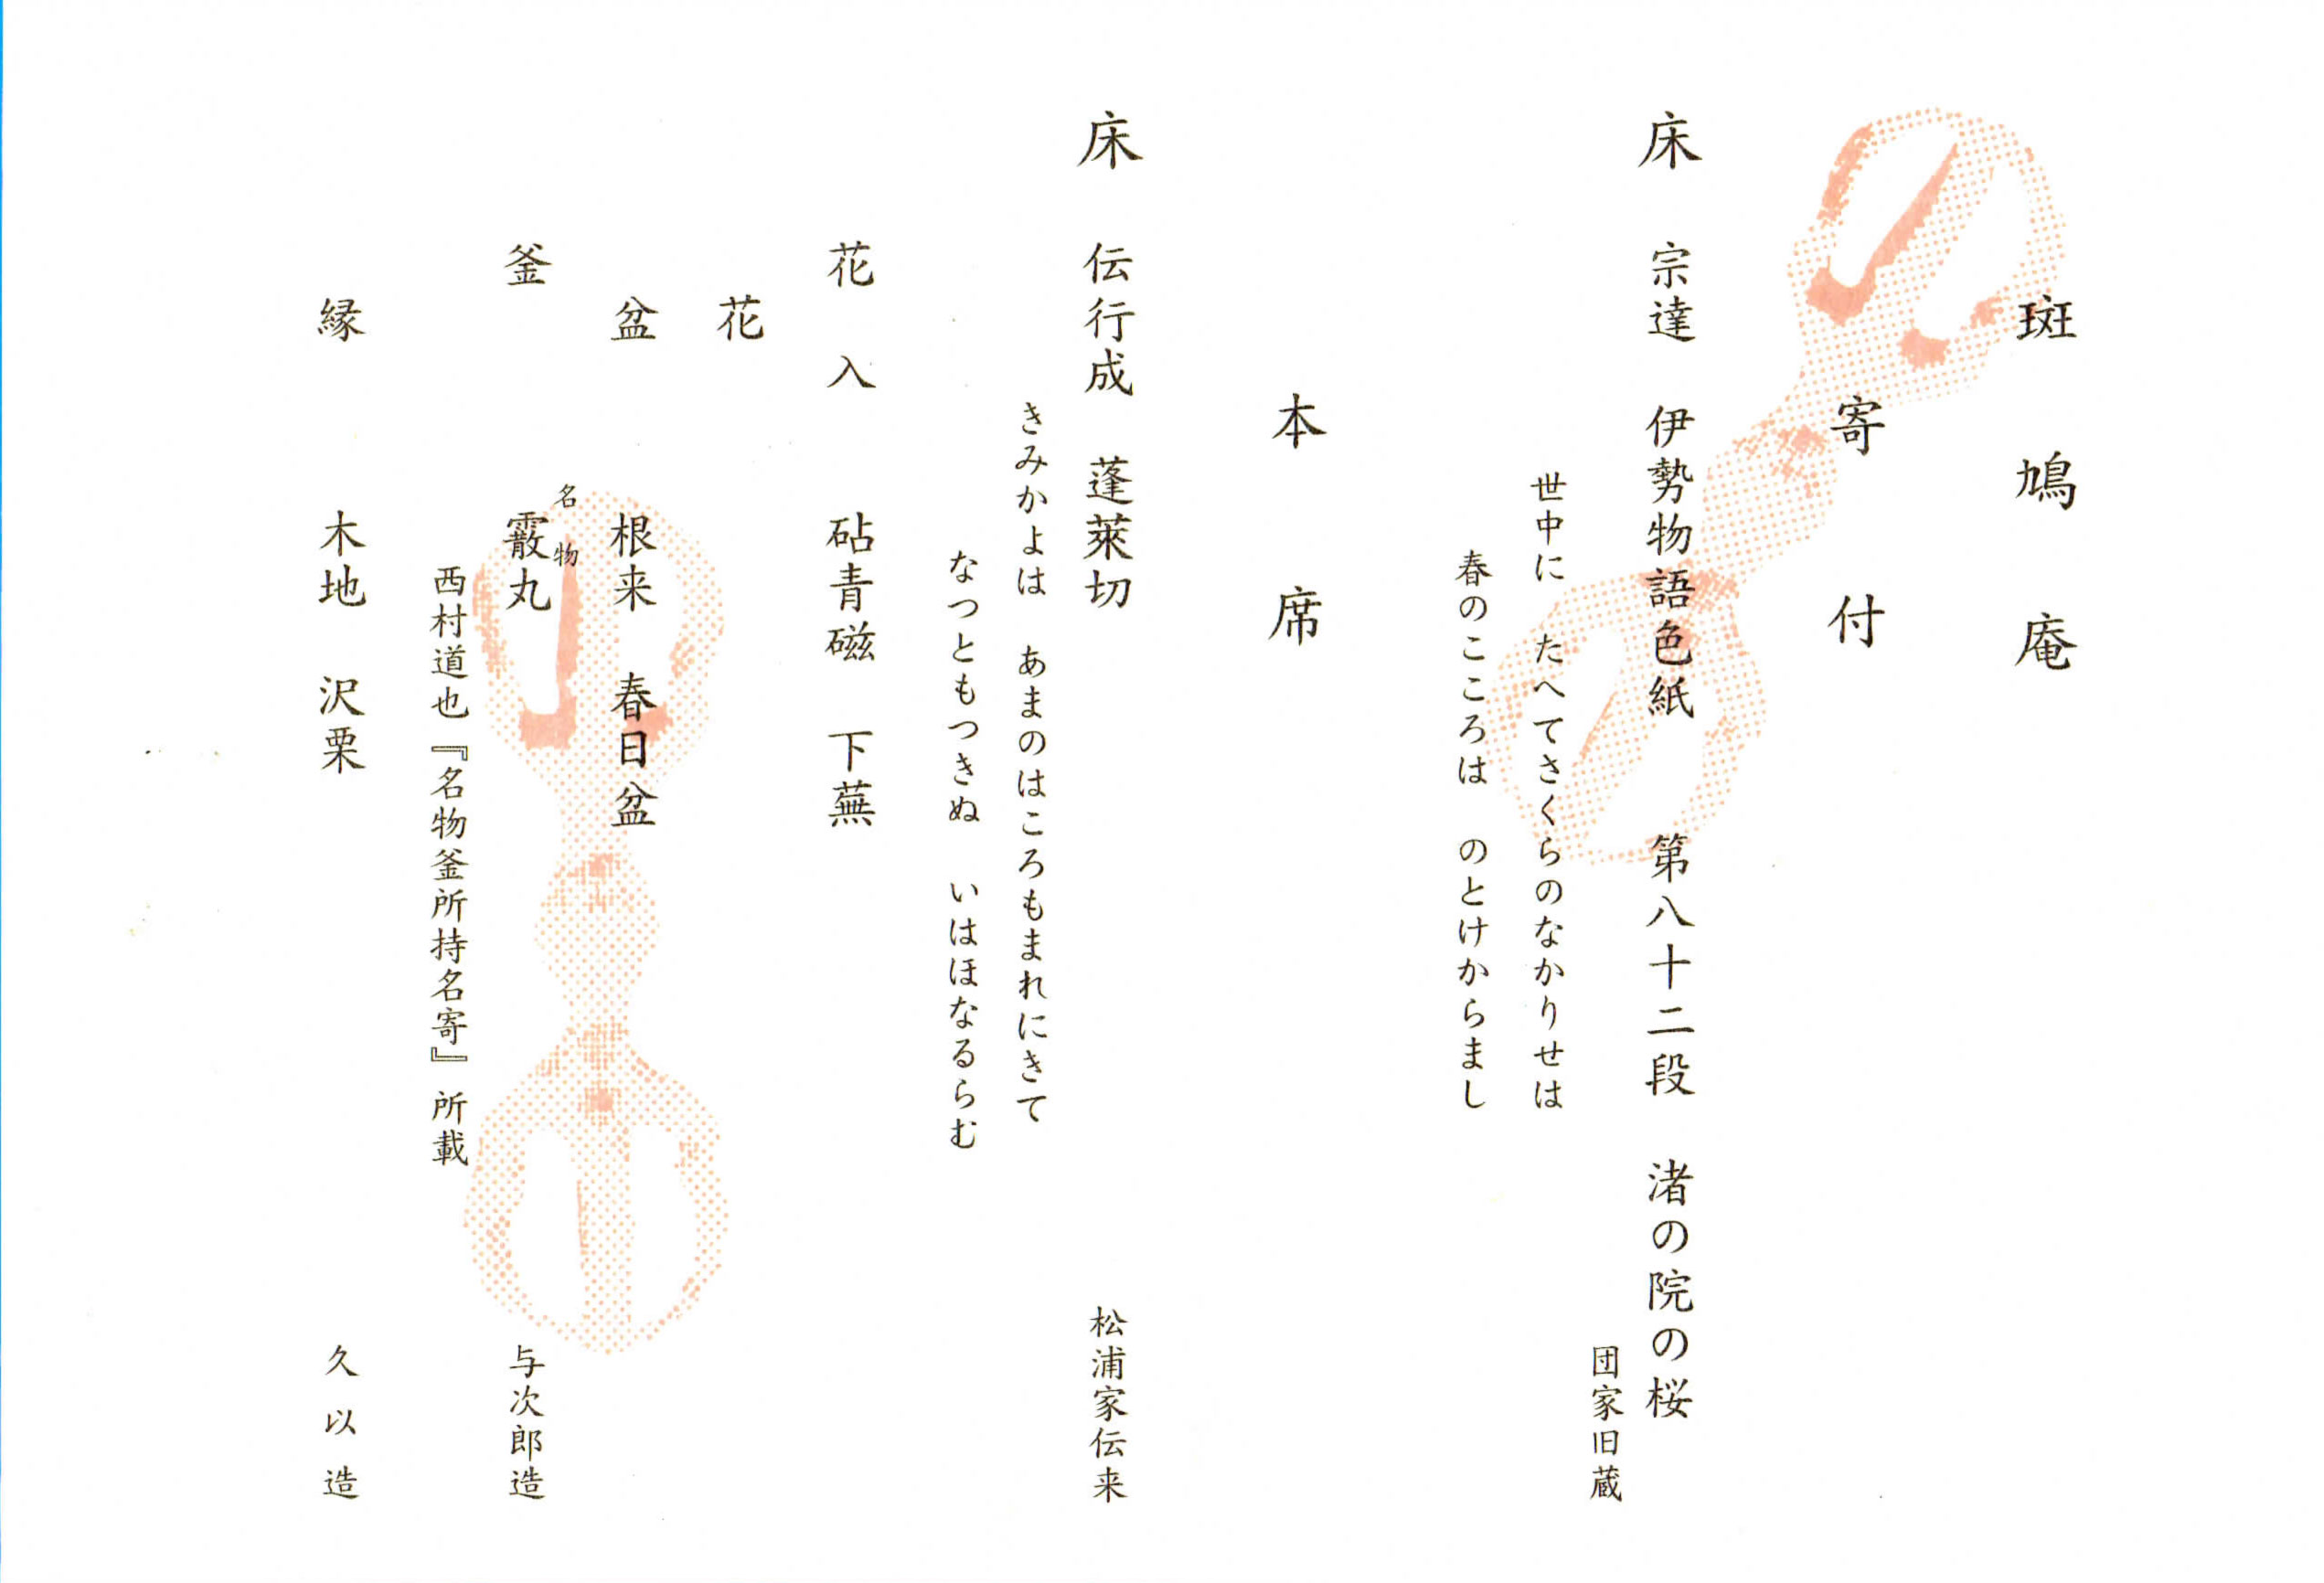 斑鳩庵
寄付
床 宗達 伊勢物語色紙 第八十二段 渚の院の桜
団家旧蔵
世中に たへてさくらのなかりせは
春のこころは のとけからまし
本席
床 伝行成 蓬萊切 松浦家伝来
きみかよは あまのはころもまれにきて
なつともつきぬ いはほなるらむ
花入 砧青磁 下蕪
花
盆 根来 春日盆
釜 名物 霰丸 与次郎造
西村道也『名物釜所持名寄』所載
縁 木地 沢栗 久以造